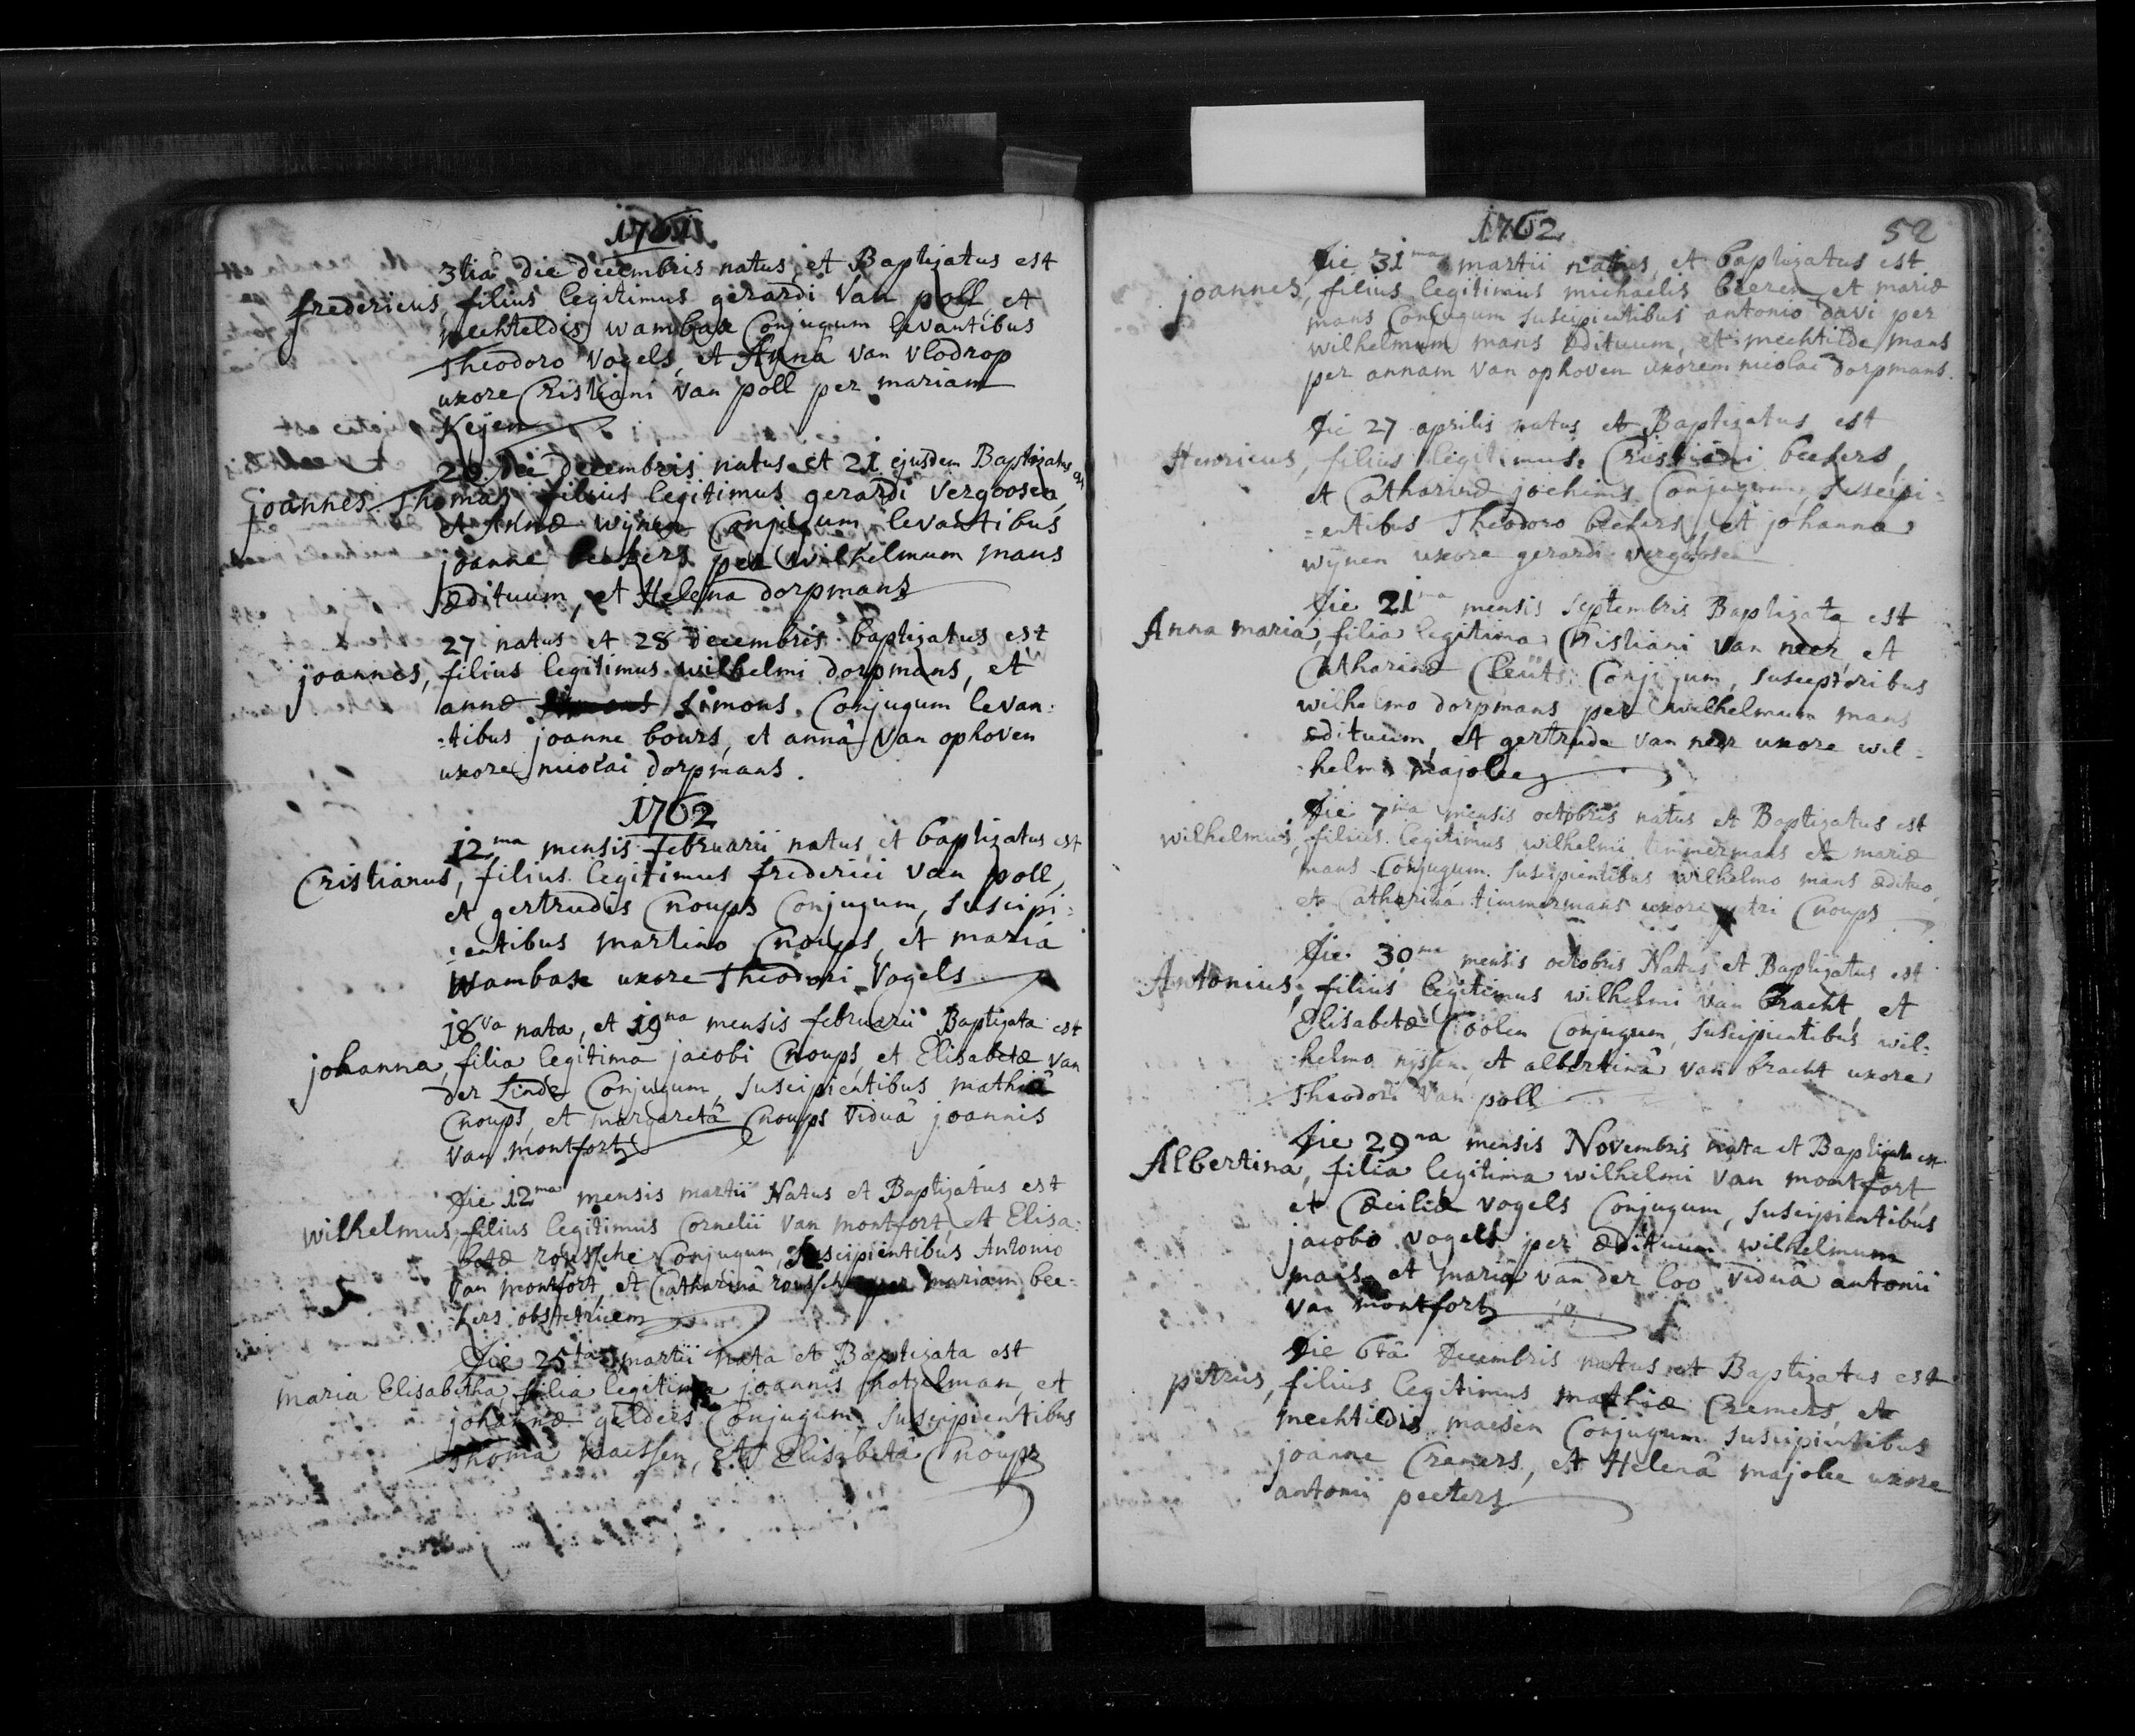 1761
3tiâ die decembris natus et Baptizatus est
fredericus, filius legitimus gerardi van poll et
mechteldis wambax Conjugum levantibus
Theodoro vogels, et Annâ van vlodrop
uxore Cristiani van poll per mariam
Keijen
20 die decembris natus et 21 ejusdem Baptizatus est
joannes Thomas filius legitimus gerardi vergoosen,
et Annæ wijnen Conjugum, levantibus
joanne beckers per wilhelmum mans
ædituum, et Helena dorpmans
27 natus et 28 decembris baptizatus est
joannes, filius legitimus wilhelmi dorpmans, et
annæ simons. Conjugum levan:
:tibus joanne bours, et annâ van ophoven
uxore nicolai dorpmans.
1762
12ma mensis februarii natus et baptizatus est
Cristianus, filius legitimus frederici van poll,
et gertrudis Cnoups Conjugum, suscipi:
:entibus martino Cnoups, et mariâ
wambax uxore Theodori Vogels
18va nata, et 19na mensis februarii Baptizata est
johanna, filia legitima jacobi Cnoups, et Elisabetæ van
der Linde Conjugum, suscipientibus mathiâ
Cnoups, et margaretâ Cnoups viduâ joannis
van montfort
Die 12ma mensis martii Natus et Baptizatus est
wilhelmus, filius legitimus Cornelii van montfort, et Elisa:
betæ roussche Conjugum, suscipientibus Antonio
van montfort, et Catharinâ roussche per mariam bec:
:kers obstetricem
Die 25ta martii nata et Baptizata est
maria Elisabetha, filia legitima joannis hotzelman, et
johannæ gelders Conjugum suscipientibus
Thoma Claessen, et Elisabetâ Cnoups
1762
52
Die 31ma martii natus, et baptizatus est
joannes, filius legitimus michaelis beeren et mariæ
mans Conjugum suscipientibus antonio davi per
wilhelmum mans ædituum, et mechtilde mans
per annam van ophoven uxorem nicolai dorpmans.
Die 27 aprilis natus et Baptizatus est
Henricus, filius legitimus Cristiani beckers,
et Catharinæ jochims Conjugum, suscipi:
:entibus Theodoro beckers, et johanna
wijnen uxore gerardi vergoosen
Die 21ma mensis septembris Baptizata est
Anna maria, filia legitima Cristiani van neer, et
Catharinæ Cleuts Conjugum, susceptoribus
wilhelmo dorpmans per wilhelmum mans
ædituum, et gertrude van neer uxore wil:
:helmi majolee
Die 7ma mensis octobris natus et Baptizatus est
wilhelmus, filius legitimus wilhelmi timmermans et mariæ
mans Conjugum. suscipientibus wilhelmo mans ædituo,
et Catharinâ timmermans uxore petri Cnoups
Die 30ma mensis octobris Natus et Baptizatus est
Antonius, filius legitimus wilhelmi van bracht, et
Elisabetæ Coolen Conjugum, suscipientibus wil:
:helmo nijssen, et albertinâ van bracht uxore
Theodori van poll
Die 29na mensis Novembris nata et Baptizata est
Albertina, filia legitima wilhelmi van montfort
et Cæciliæ vogels Conjugum, suscipientibus
jacobo vogels per ædituum wilhelmum
mans et mariâ van der loo viduâ antonii
van montfort
Die 6tâ Decembris natus et Baptizatus est
petrus, filius legitimus mathiæ Cremers, et
mechtildis maesen Conjugum suscipientibus
joanne Cremers, et Helenâ majolee uxore
antonii peeters